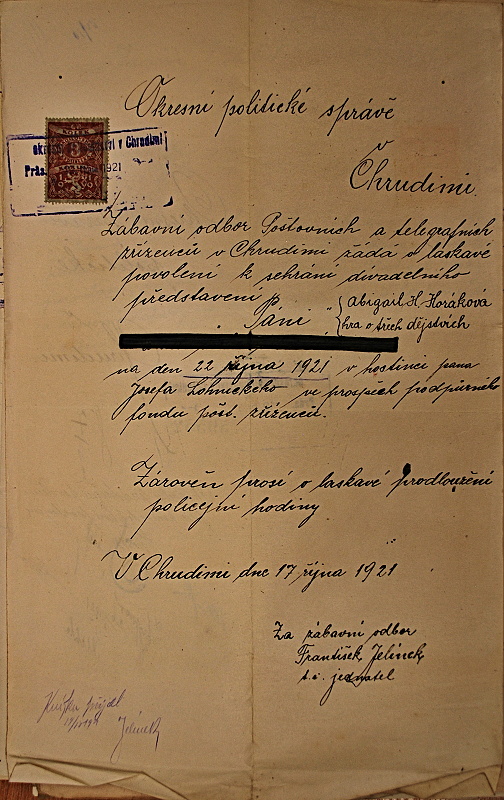 Okresní politické správě
v
Chrudimi.
KOLEK
v Chrudimi
1921
Zábavní odbor Poštovních a telegrafních
zřízenců v Chrudimi žádá o laskavé
povolení k sehrání divadelního
představení „Paní“ Abigail H. Horáková
hra o třech dějstvích
na den 22 října 1921 v hostinci pana
Josefa ve prospěch podpůrného
fondu pošt. zřízenců.
Zároveň prosí o laskavé prodloužení
policejní hodiny
V Chrudimi dne 17 října 1921
Za zábavní odbor
František Jelínek
t. č. jednatel
Jelínek